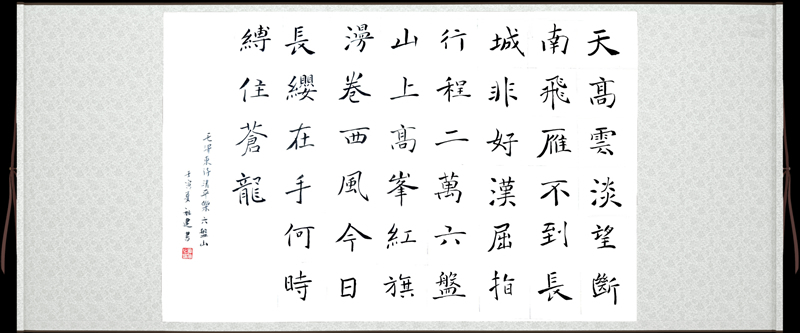 天髙雲淡望斷
南飛雁不到長
城非好漢屈指
行程二萬六盤
山上髙峯紅旗
漫卷西風今日
長纓在手何時
縛住蒼龍
毛澤東詩清平樂六盤山
壬寅夏建書